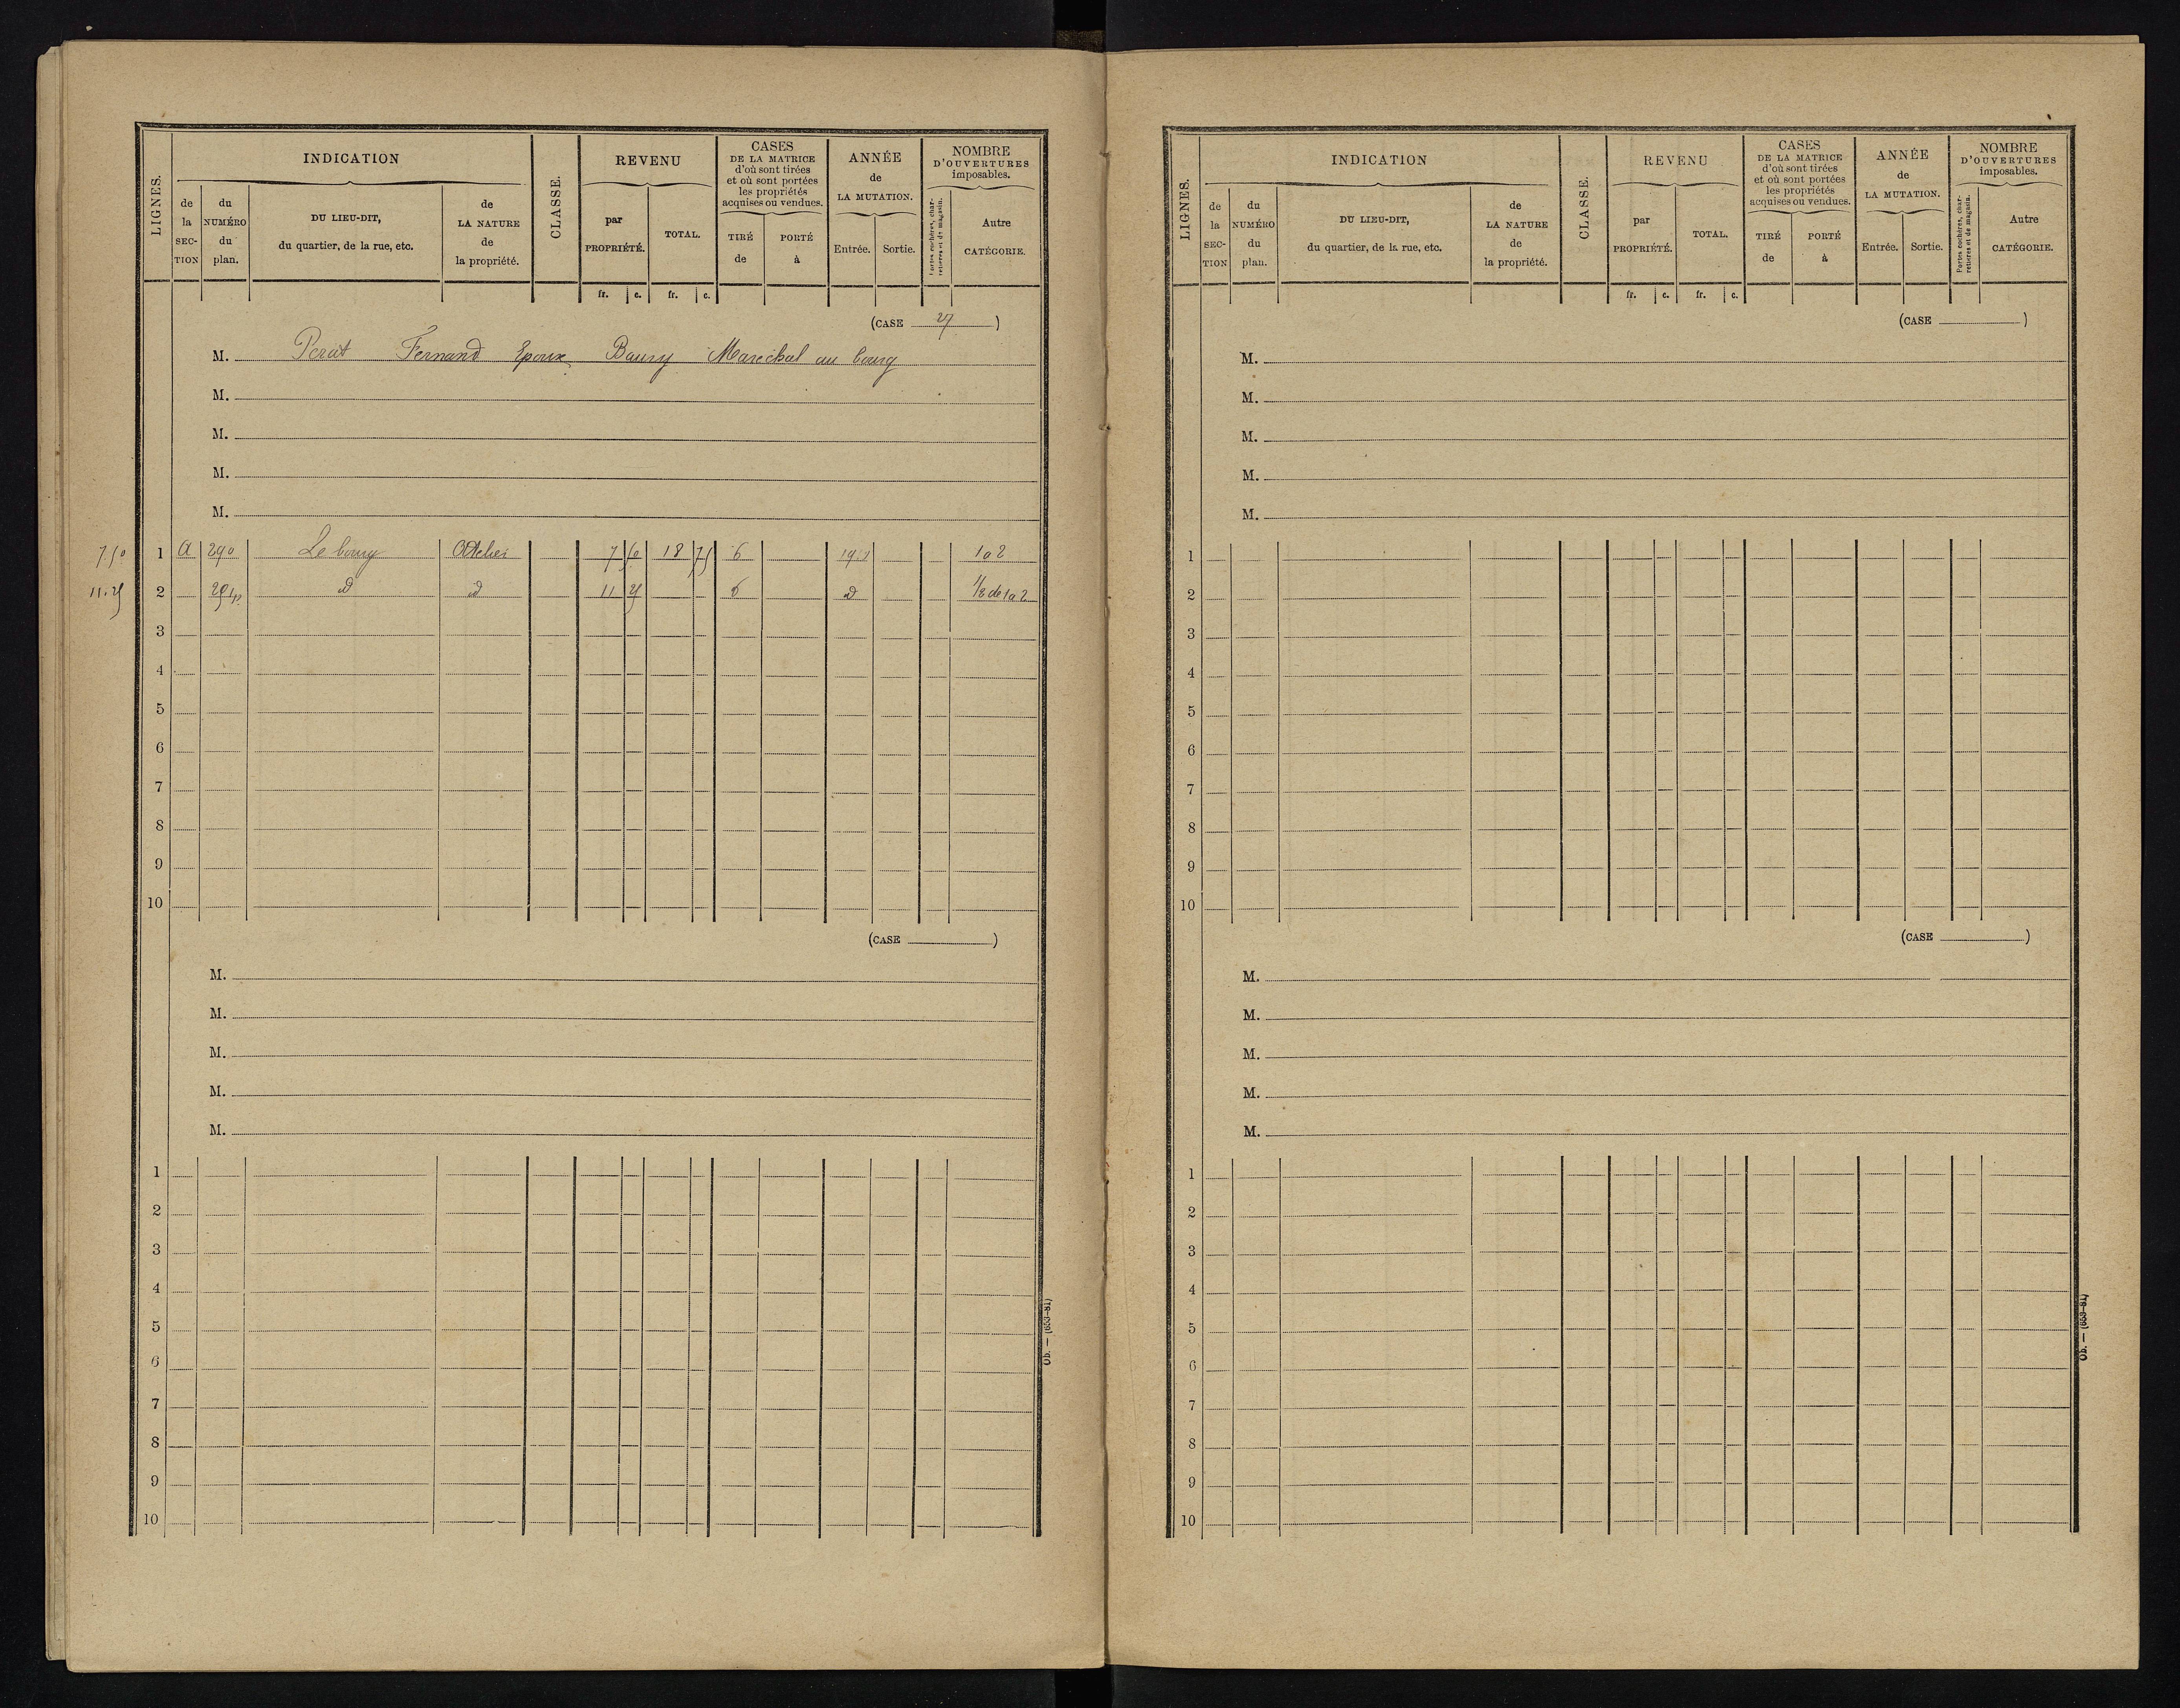 LIGNES.
INDICATION
de la SECTION
du NUMÉRO du plan.
DU LIEU-DIT, du quartier, de la rue, etc.
de LA NATURE de la propriété.
CLASSE.
REVENU
par PROPRIÉTÉ.
TOTAL.
fr. c. fr. c.
CASES DE LA MATRICE d'où sont tirées et où sont portées les propriétés acquises ou vendues.
TIRÉ de
PORTÉ à
ANNÉE de LA MUTATION.
Entrée. Sortie.
NOMBRE D'OUVERTURES imposables.
Portes cochères, charretières et de magasin.
Autre CATÉGORIE.
(CASE 27)
M. Perat Fernand Epoux Baury Marechal au bourg
M.
M.
M.
M.
7.50 1 A 290 Le bourg Atelier 7 50 18 75 6 1 a 2
11.25 2 d d 11 25 6 d 1/2 de 1 a 2
3
4
5
6
7
8
9
10
(CASE )
M.
M.
M.
M.
M.
1
2
3
4
5
6
7
8
9
10
Ob. — (653-81)
LIGNES.
INDICATION
de la SECTION
du NUMÉRO du plan.
DU LIEU-DIT, du quartier, de la rue, etc.
de LA NATURE de la propriété.
CLASSE.
REVENU
par PROPRIÉTÉ.
TOTAL.
fr. c. fr. c.
CASES DE LA MATRICE d'où sont tirées et où sont portées les propriétés acquises ou vendues.
TIRÉ de
PORTÉ à
ANNÉE de LA MUTATION.
Entrée. Sortie.
NOMBRE D'OUVERTURES imposables.
Portes cochères, charretières et de magasin.
Autre CATÉGORIE.
(CASE )
M.
M.
M.
M.
M.
1
2
3
4
5
6
7
8
9
10
(CASE )
M.
M.
M.
M.
M.
1
2
3
4
5
6
7
8
9
10
Ob. — (653-81)